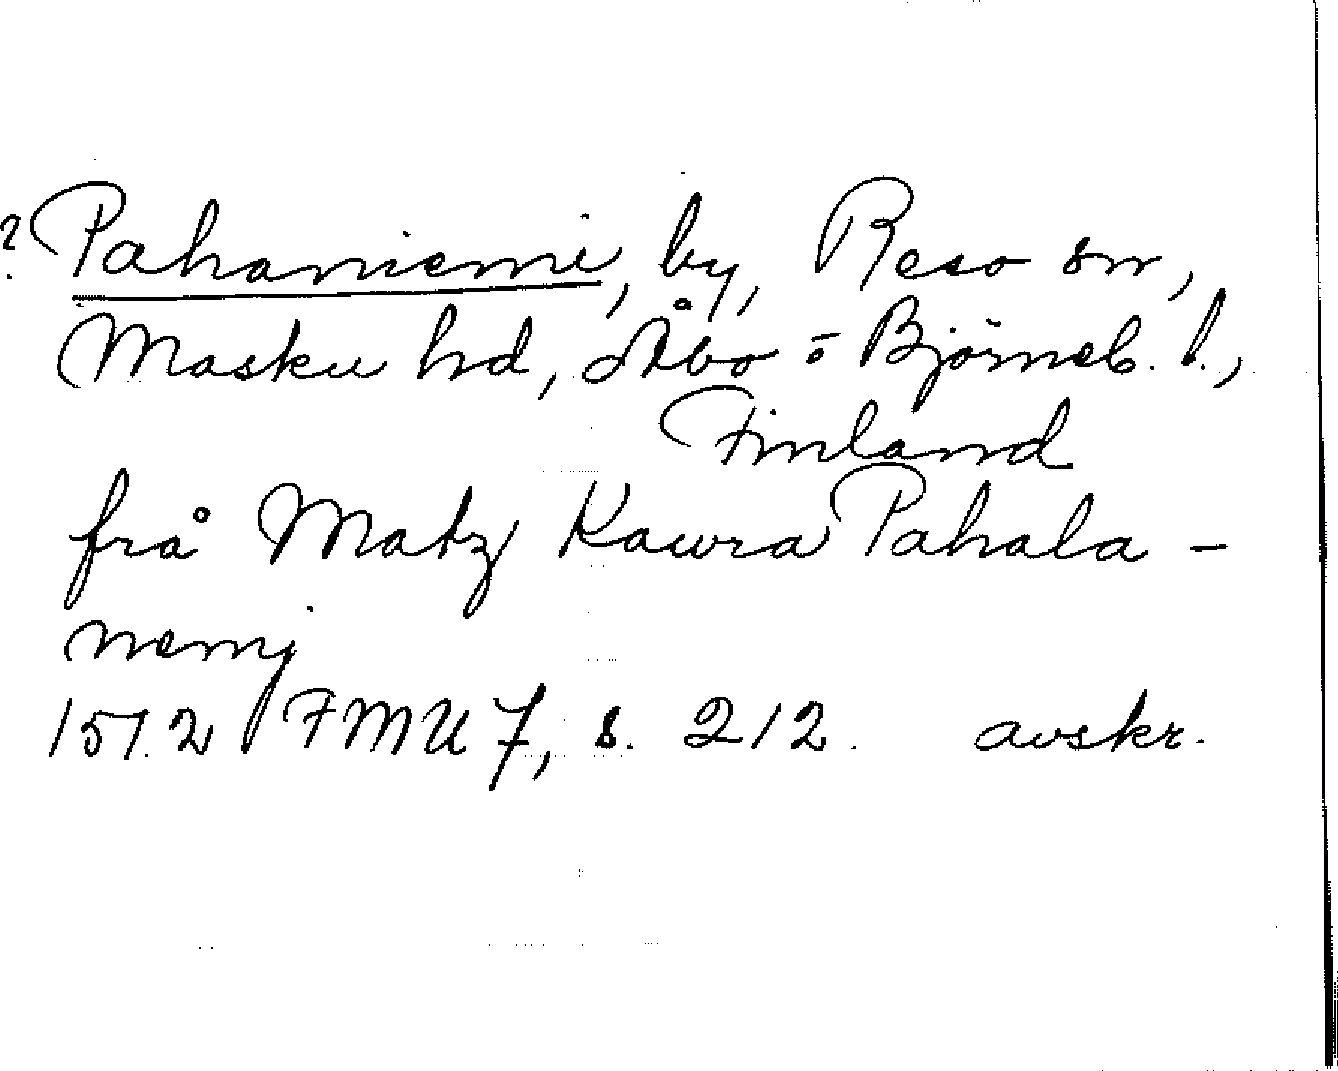 ? Pahaniemi, by, Reso sn,
Masku hd, Åbo o Björneb. l.,
Finland
frå Matz Kawra Pahala-
nemj
1512 FMU 7, s. 212. avskr.